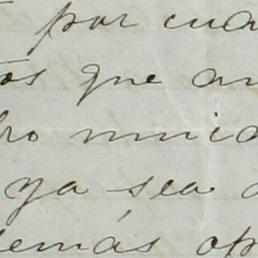 por cua
os que an
ro unic
ya sea
demás op